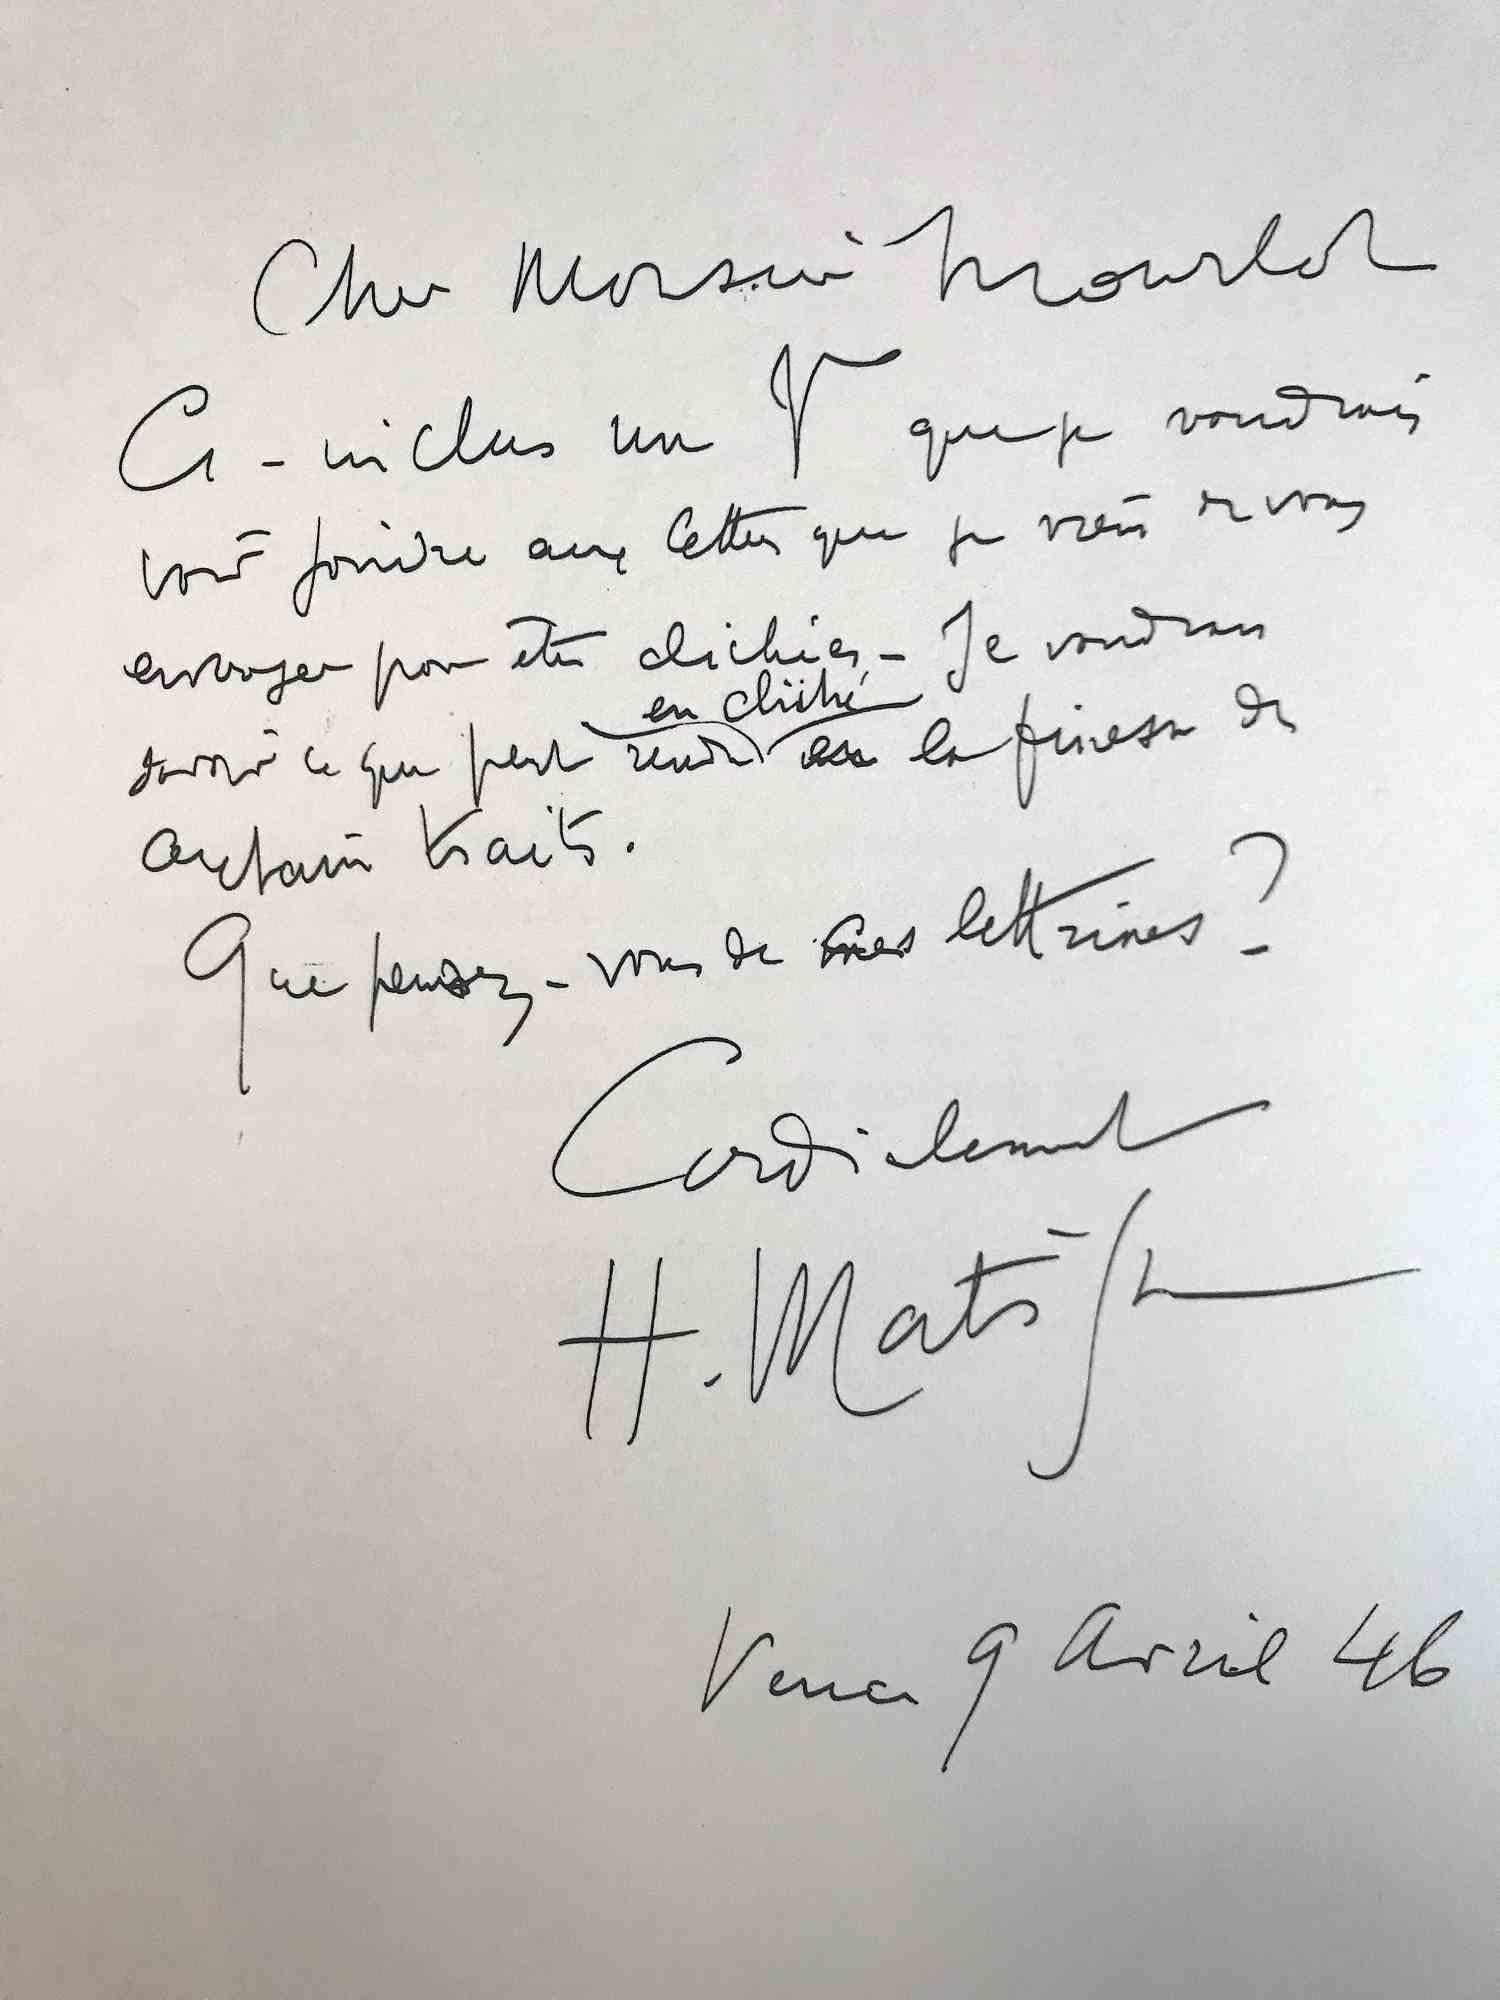 Cher Monsieur Mourlot
Ci-inclus un V que je voudrais
voir joindre aux lettres que je viens de vous
envoyer pour être clichées - Je voudrais
en cliché
savoir ce que peut rendre la finesse de
certains traits.
Que pensez-vous de mes lettrines ?
Cordialement
H. Matisse
Vence 9 Avril 46